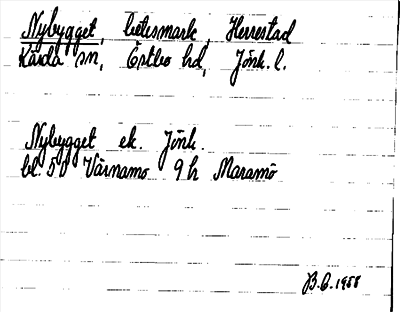 Nybygget, betesmark, Herrestad
Kärda sn, Östbo hd, Jönk. l.
Nybygget ek. Jönk.
bl. 5D Värnamo 9h Maramö
B.G. 1958